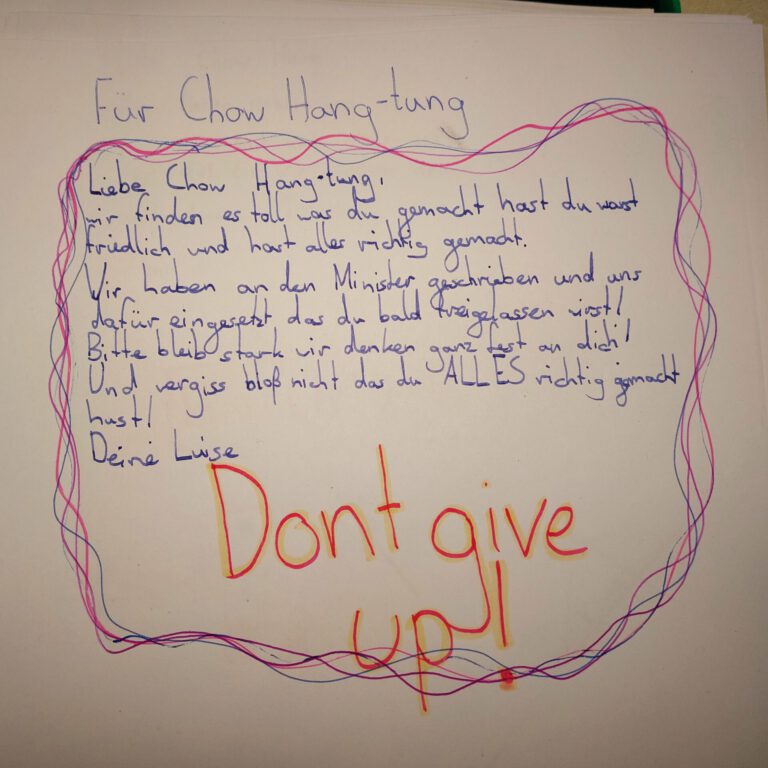 Für Chow Hang-tung
Liebe Chow Hang-tung,
wir finden es toll was du gemacht hast du warst
friedlich und hast alles richtig gemacht.
Wir haben an den Minister geschrieben und uns
dafür eingesetzt das du bald freigelassen wirst!
Bitte bleib stark wir denken ganz fest an dich!
Und vergiss bloß nicht das du ALLES richtig gemacht
hast!
Deine Luise
Dont give
up!